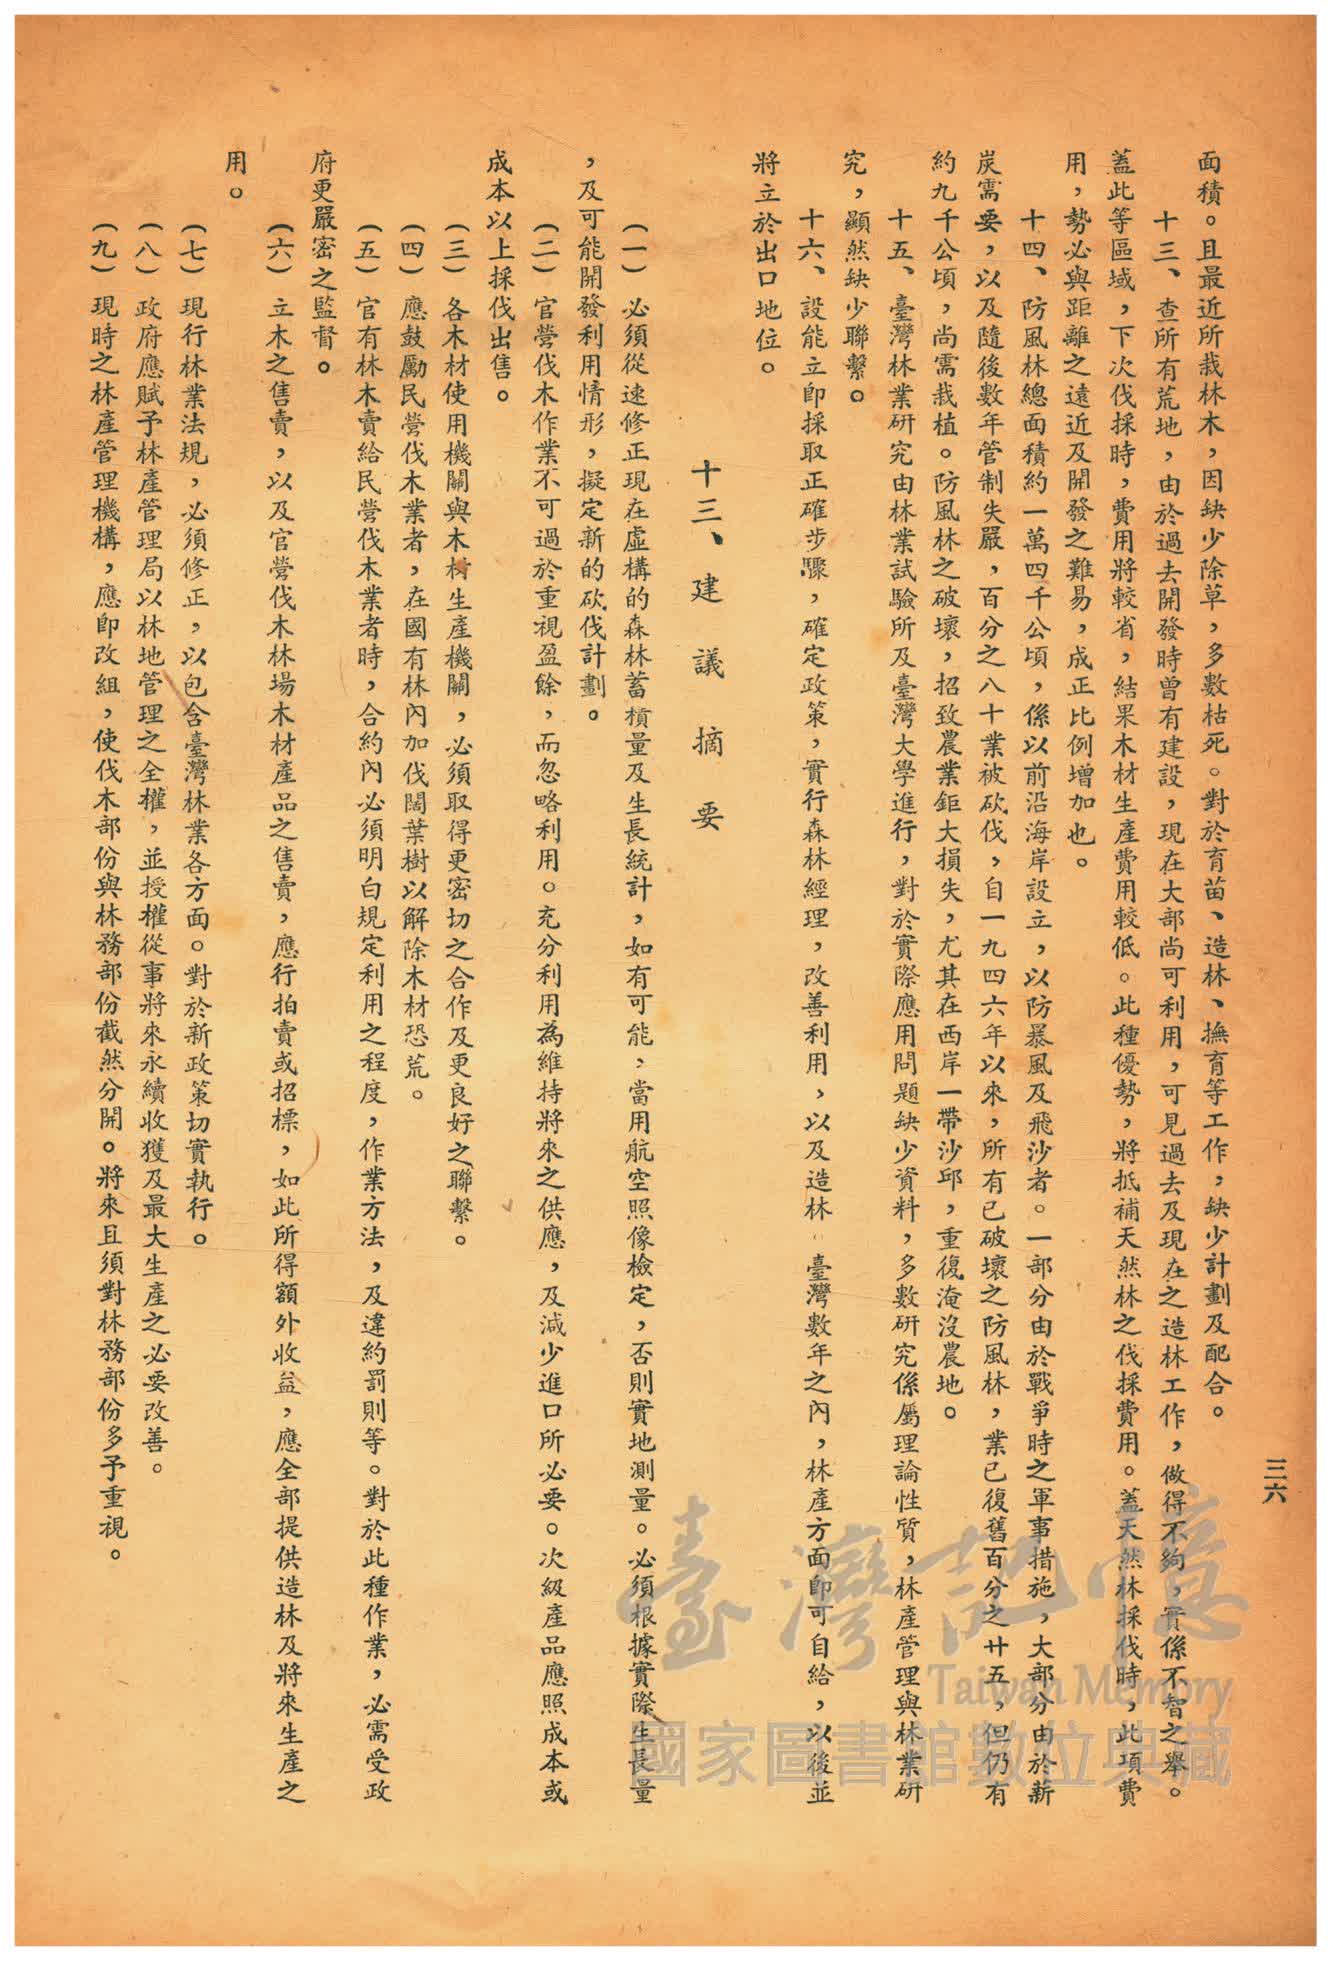 三六
面積。且最近所栽林木，因缺少除草，多數枯死。對於育苗、造林、撫育等工作，缺少計劃及配合。
十三、查所有荒地，由於過去開發時曾有建設，現在大部尚可利用，可見過去及現在之造林工作，做得不夠，實係不智之舉。
蓋此等區域，下次伐採時，費用將較省，結果木材生產費用較低。此種優勢，將抵補天然林之伐採費用。蓋天然林採伐時，此項費
用，勢必與距離之遠近及開發之難易，成正比例增加也。
十四、防風林總面積約一萬四千公頃，係以前沿海岸設立，以防暴風及飛沙者。一部分由於戰爭時之軍事措施，大部分由於薪
炭需要，以及隨後數年管制失嚴，百分之八十業被砍伐，自一九四六年以來，所有已破壞之防風林，業已復舊百分之廿五，但仍有
約九千公頃，尚需栽植。防風林之破壞，招致農業鉅大損失，尤其在西岸一帶沙邱，重復淹沒農地。
十五、臺灣林業研究由林業試驗所及臺灣大學進行，對於實際應用問題缺少資料，多數研究係屬理論性質，林產管理與林業研
究，顯然缺少聯繫。
十六、設能立即採取正確步驟，確定政策，實行森林經理，改善利用，以及造林，臺灣數年之內，林產方面即可自給，以後並
將立於出口地位。
十三、建議摘要
（一）必須從速修正現在虛構的森林蓄積量及生長統計，如有可能，當用航空照像檢定，否則實地測量。必須根據實際生長量
，及可能開發利用情形，擬定新的砍伐計劃。
（二）官營伐木作業不可過於重視盈餘，而忽略利用。充分利用為維持將來之供應，及減少進口所必要。次級產品應照成本或
成本以上採伐出售。
（三）各木材使用機關與木材生產機關，必須取得更密切之合作及更良好之聯繫。
（四）應鼓勵民營伐木業者，在國有林內加伐闊葉樹以解除木材恐荒。
（五）官有林木賣給民營伐木業者時，合約內必須明白規定利用之程度，作業方法，及違約罰則等。對於此種作業，必需受政
府更嚴密之監督。
（六）立木之售賣，以及官營伐木林場木材產品之售賣，應行拍賣或招標，如此所得額外收益，應全部提供造林及將來生產之
用。
（七）現行林業法規，必須修正，以包含臺灣林業各方面。對於新政策切實執行。
（八）政府應賦予林產管理局以林地管理之全權，並授權從事將來永續收獲及最大生產之必要改善。
（九）現時之林產管理機構，應即改組，使伐木部份與林務部份截然分開。將來且須對林務部份多予重視。
臺灣記憶
Taiwan Memory
國家圖書館數位典藏